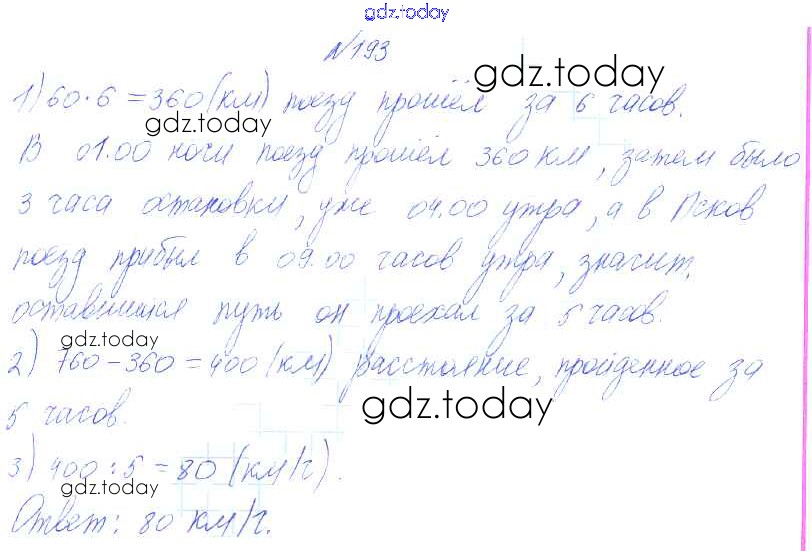 gdz.today
№193
gdz.today
1) 60·6=360 (км) поезд прошёл за 6 часов.
gdz.today
В 01.00 ночи поезд прошёл 360 км, затем было
3 часа остановки, уже 04.00 утра, а в Псков
поезд прибыл в 09.00 часов утра, значит,
оставшийся путь он проехал за 5 часов.
gdz.today
2) 760-360=400 (км) расстояние, пройденное за
gdz.today
5 часов.
3) 400:5=80 (км/ч).
gdz.today
Ответ: 80 км/ч.